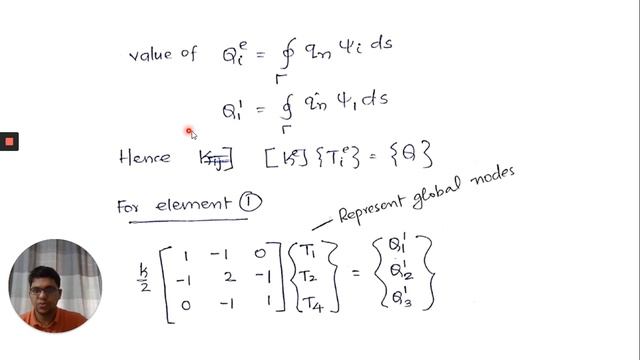 value of Qᵢᵉ = ∮_Γ qₙ ψᵢ ds
Q₁¹ = ∮_Γ qₙ ψ₁ ds
Hence [Kᵉ] {Tᵢᵉ} = {Q}
For element ①
Represent global nodes
k/2 [ 1 -1 0 ] { T₁ } = { Q₁¹ }
[ -1 2 -1 ] { T₂ } { Q₂¹ }
[ 0 -1 1 ] { T₄ } { Q₃¹ }